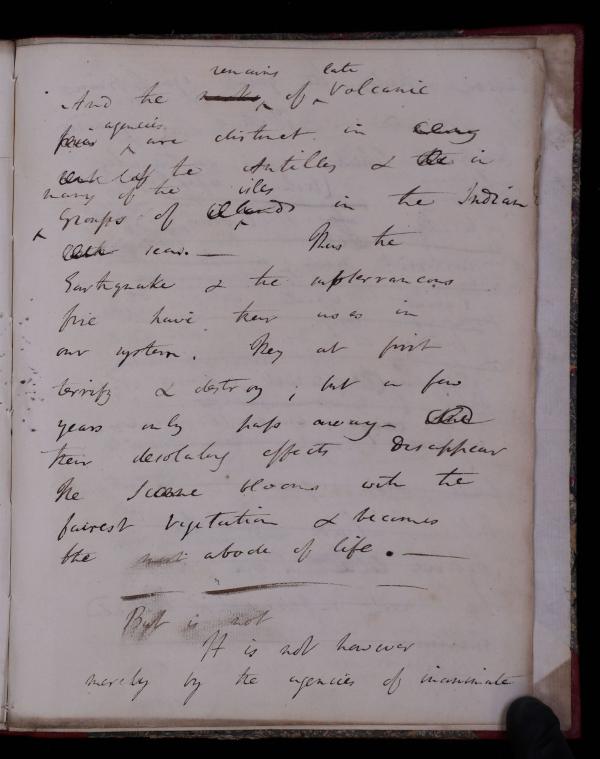 remains late
And the of Volcanic
agencies
are distinct in
of the Antilles & in
many of the isles
Groups of in the Indian
seas. —  Thus the
Earthquake & the subterraneous
fire have their uses in
our system. They at first
terrify & destroy; but in few
years only pass away —
their desolating effects Disappear
The Scene blooms with the
fairest vegetation & becomes
the abode of life. —
But is not
It is not however
merely by the agencies of inanimate